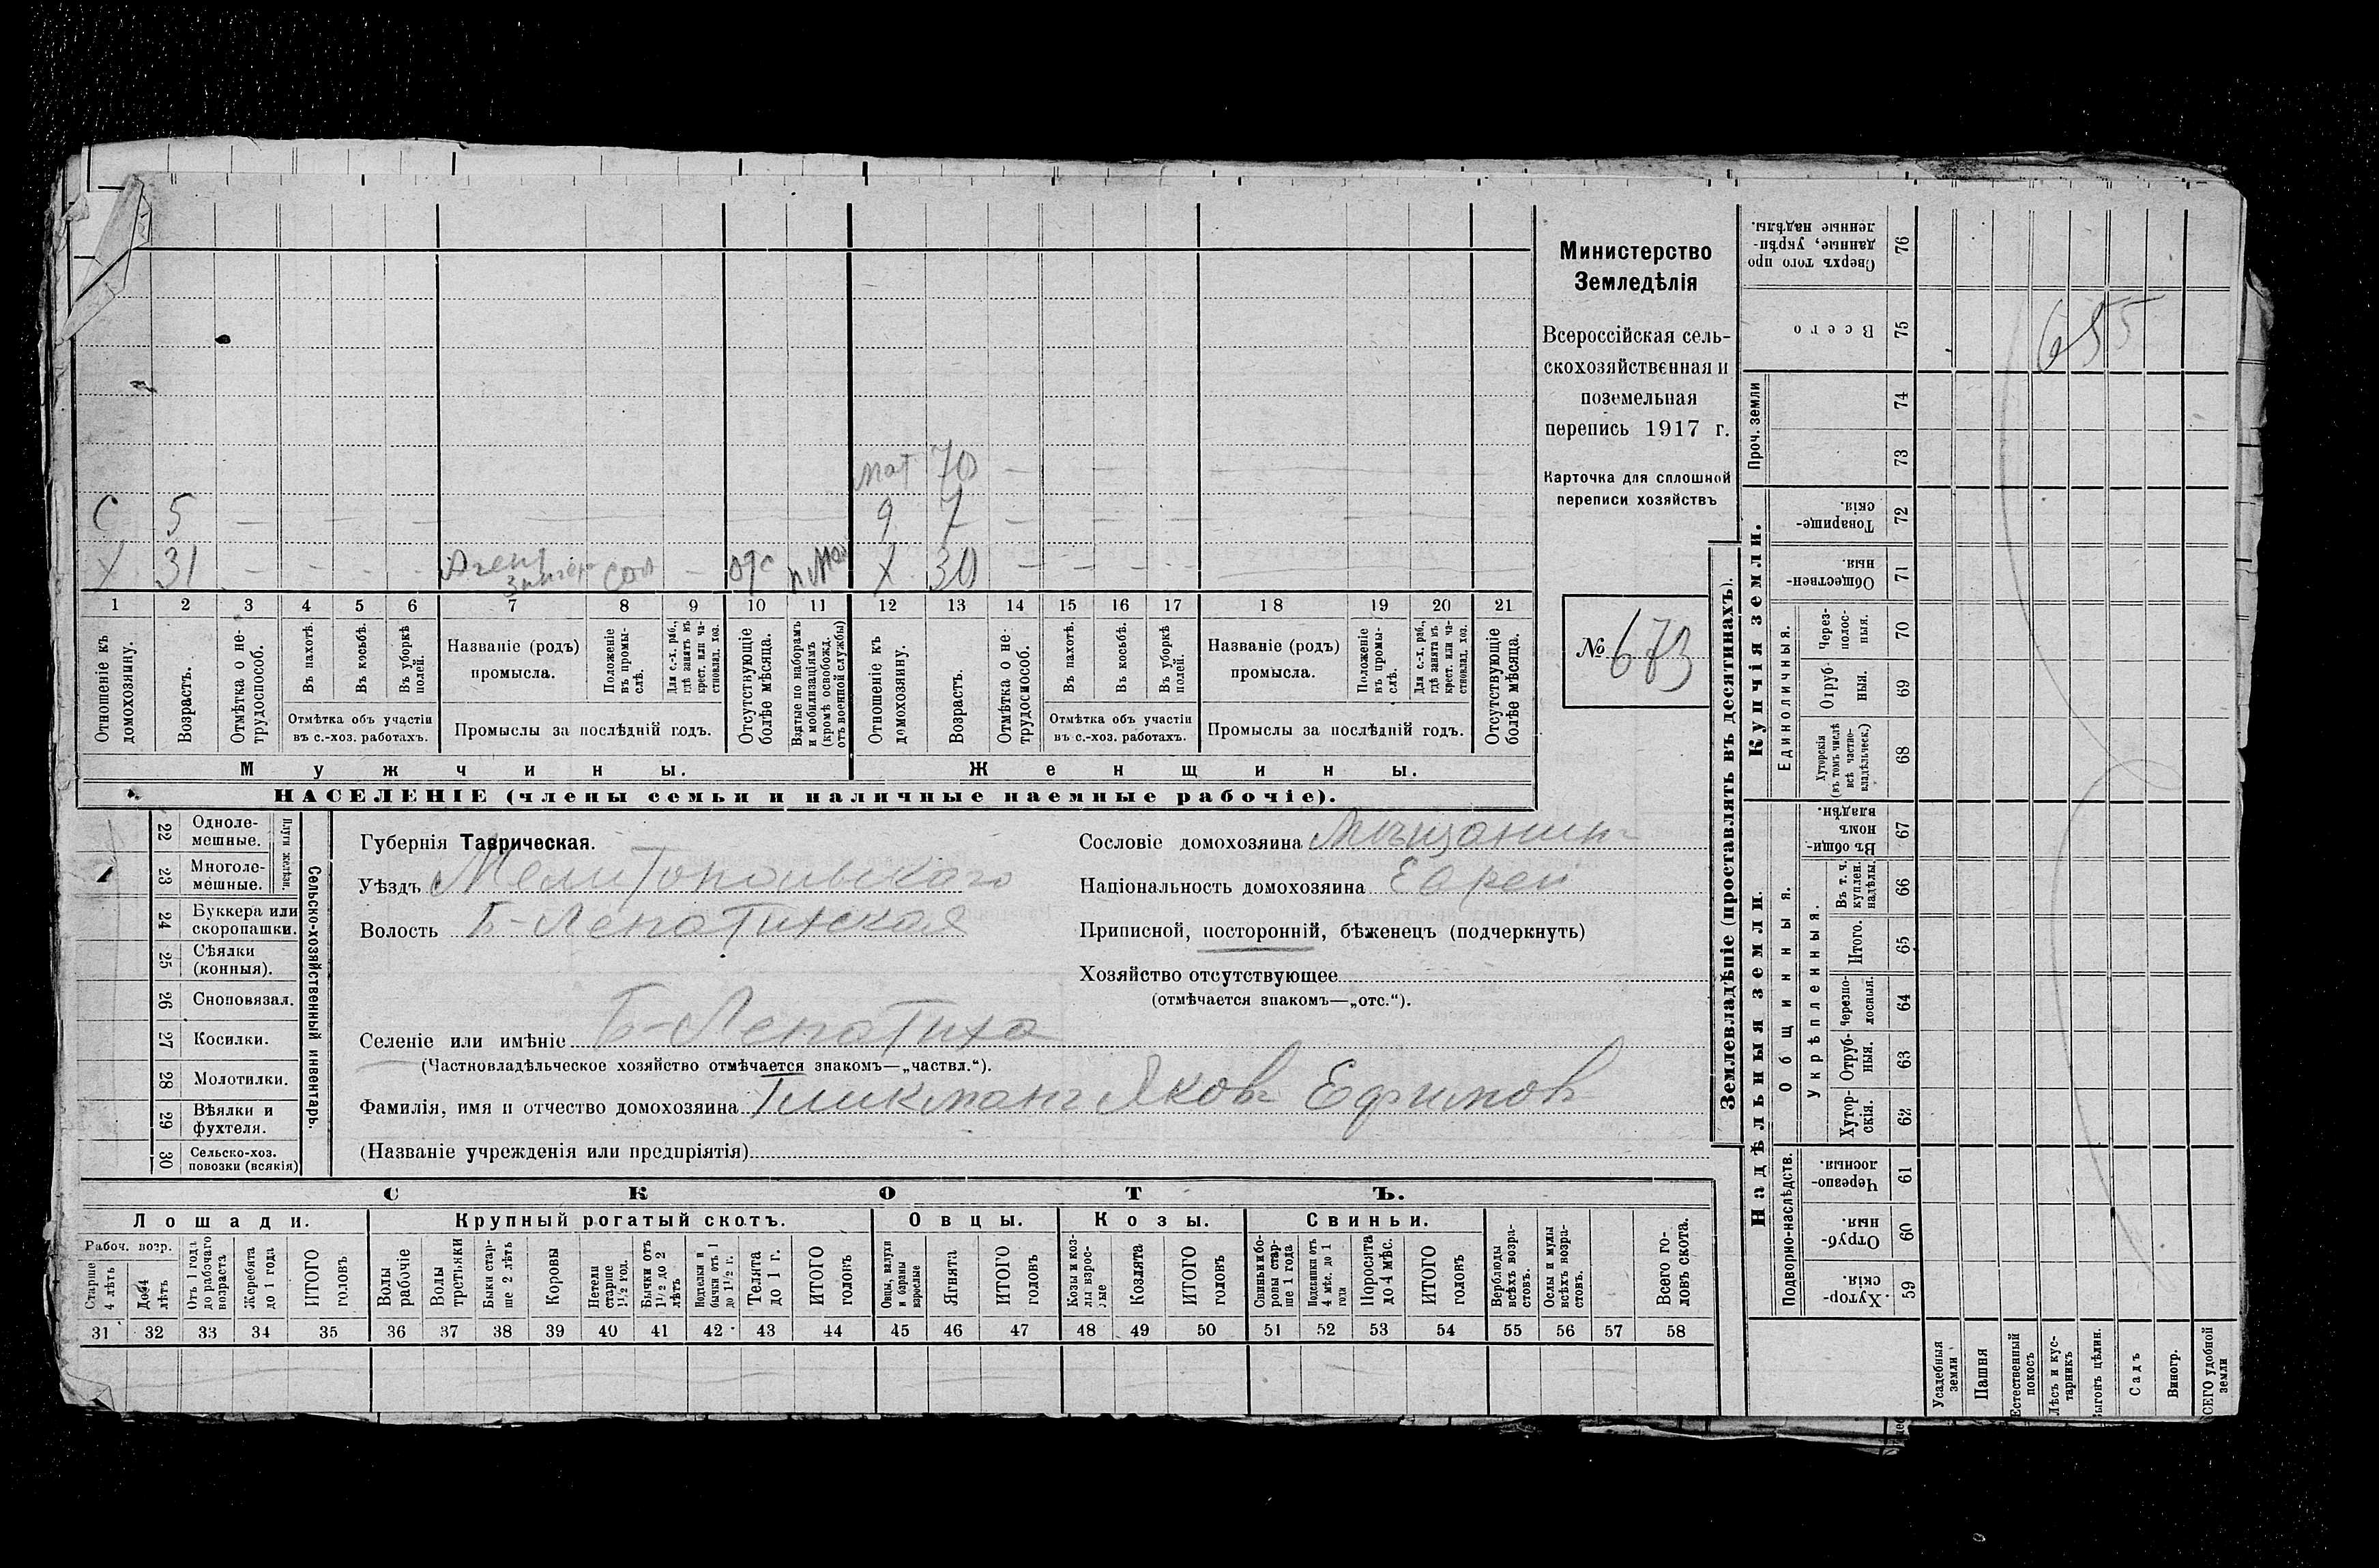 Министерство
Земледѣлія
Всероссійская сель-
скохозяйственная и
поземельная
перепись 1917 г.
Карточка для сплошной
переписи хозяйствъ
№ 673
мат 70 — — — — — — — —
С 5 — — — — — — — —
9 7 — — — — — — —
Х 31 — — — — Агент сол — отс
Х 30 — — — — — — —
1 2 3 4 5 6 7 8 9 10 11 12 13 14 15 16 17 18 19 20 21
Отношеніе къ домохозяину.
Возрастъ.
Отмѣтка о не-трудоспособ.
Въ пахотѣ.
Въ косьбѣ.
Въ уборкѣ полей.
Отмѣтка объ участіи
въ с.-хоз. работахъ.
Названіе (родъ)
промысла.
Положеніе въ промы-слѣ.
Для с.-х. раб., гдѣ занятъ въ крест. или ча-стновлад. хоз.
Промыслы за послѣдній годъ.
Отсутствующіе болѣе мѣсяца.
Взятые по наборамъ и мобилизаціямъ (кромѣ освобожд. отъ военной службы)
Отношеніе къ домохозяину.
Возрастъ.
Отмѣтка о не-трудоспособ.
Въ пахотѣ.
Въ косьбѣ.
Въ уборкѣ полей.
Отмѣтка объ участіи
въ с.-хоз. работахъ.
Названіе (родъ)
промысла.
Положеніе въ промы-слѣ.
Для с.-х. раб., гдѣ занята въ крест. или ча-стновлад. хоз.
Промыслы за послѣдній годъ.
Отсутствующіе болѣе мѣсяца.
Мужчины.
Женщины.
НАСЕЛЕНІЕ (члены семьи и наличные наемные рабочіе).
Сельско-хозяйственный инвентарь.
Плуги желѣзн.
22 Одноле-мешные.
23 Многоле-мешные.
24 Буккера или скоропашки.
25 Сѣялки (конныя).
26 Сноповязал.
27 Косилки.
28 Молотилки.
29 Вѣялки и фухтеля.
30 Сельско-хоз. повозки (всякія)
Губернія Таврическая.
Уѣздъ Мелитопольскаго
Волость Б-Лепатихская
Селеніе или имѣніе Б-Лепатиха
(Частновладѣльческое хозяйство отмѣчается знакомъ—„частвл.“).
Фамилія, имя и отчество домохозяина Гликманъ Яковъ Ефимовъ
(Названіе учрежденія или предпріятія)
Сословіе домохозяина Мѣщанинъ
Національность домохозяина Еврей
Приписной, посторонній, бѣженецъ (подчеркнуть)
Хозяйство отсутствующее
(отмѣчается знакомъ—„отс.“).
СКОТЪ.
Лошади. Крупный рогатый скотъ. Овцы. Козы. Свиньи.
Рабоч. возр.
Старше 4 лѣтъ
До 4 лѣтъ
Отъ 1 года до рабочаго возраста
Жеребята до 1 года
ИТОГО головъ
Волы рабочіе
Волы третьяки
Быки стар-ше 2 лѣтъ
Коровы
Нетели старше 1 1/2 год.
Бычки отъ 1 1/2 до 2 лѣтъ
Подтелки и бычки отъ 1 до 1 1/2 г.
Телята до 1 г.
ИТОГО головъ
Овцы, валухи и бараны взрослые
Ягнята
ИТОГО головъ
Козы и коз-лы взрос-лые
Козлята
ИТОГО головъ
Свиньи и бо-ровы стар-ше 1 года
Подсвинки отъ 4 мѣс. до 1 года
Поросята до 4 мѣс.
ИТОГО головъ
Верблюды всѣхъ возра-стовъ.
Ослы и мулы всѣхъ возра-стовъ.
Всего го-ловъ скота.
31 32 33 34 35 36 37 38 39 40 41 42 43 44 45 46 47 48 49 50 51 52 53 54 55 56 57 58
Землевладѣніе (проставлять въ десятинахъ).
Надѣльныя земли.
Купчія земли.
Проч. земли
Подворно-наслѣдств.
Общинныя.
Укрѣпленныя.
Единоличныя.
76 Сверхъ того про-данные, укрѣп-ленные надѣлы.
75 Всего
74
73
72 Товарище-скія
71 Обществен-ныя.
70 Через-полос-ныя.
69 Отруб-ныя.
68 Хуторскія (въ томъ числѣ всѣ частно-владѣльческ.)
67 Въ общи-номъ владѣн.
66 Въ т. ч. куплен. надѣлы.
65 Итого.
64 Черезпо-лосныя.
63 Отруб-ныя.
62 Хутор-скія.
61 Черезпо-лосныя.
60 Отруб-ныя.
59 Хутор-скія.
Усадебныя земли
Пашня
Естественный покосъ
Лѣсъ и кус-тарникъ
Выгонъ цѣлин.
Садъ
Виногр.
ВСЕГО удобной земли
655